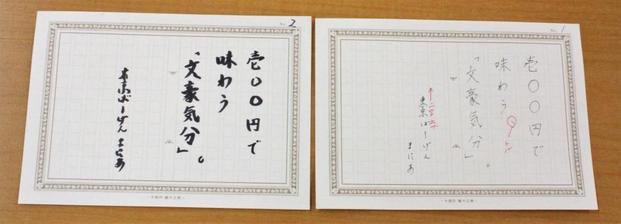 No. 2
壱〇〇円で
味わう
「文豪気分」。
東京ばーげん まにあ
No. 1
壱〇〇円で
味わう
「文豪気分」。
東京ばーげん
まにあ